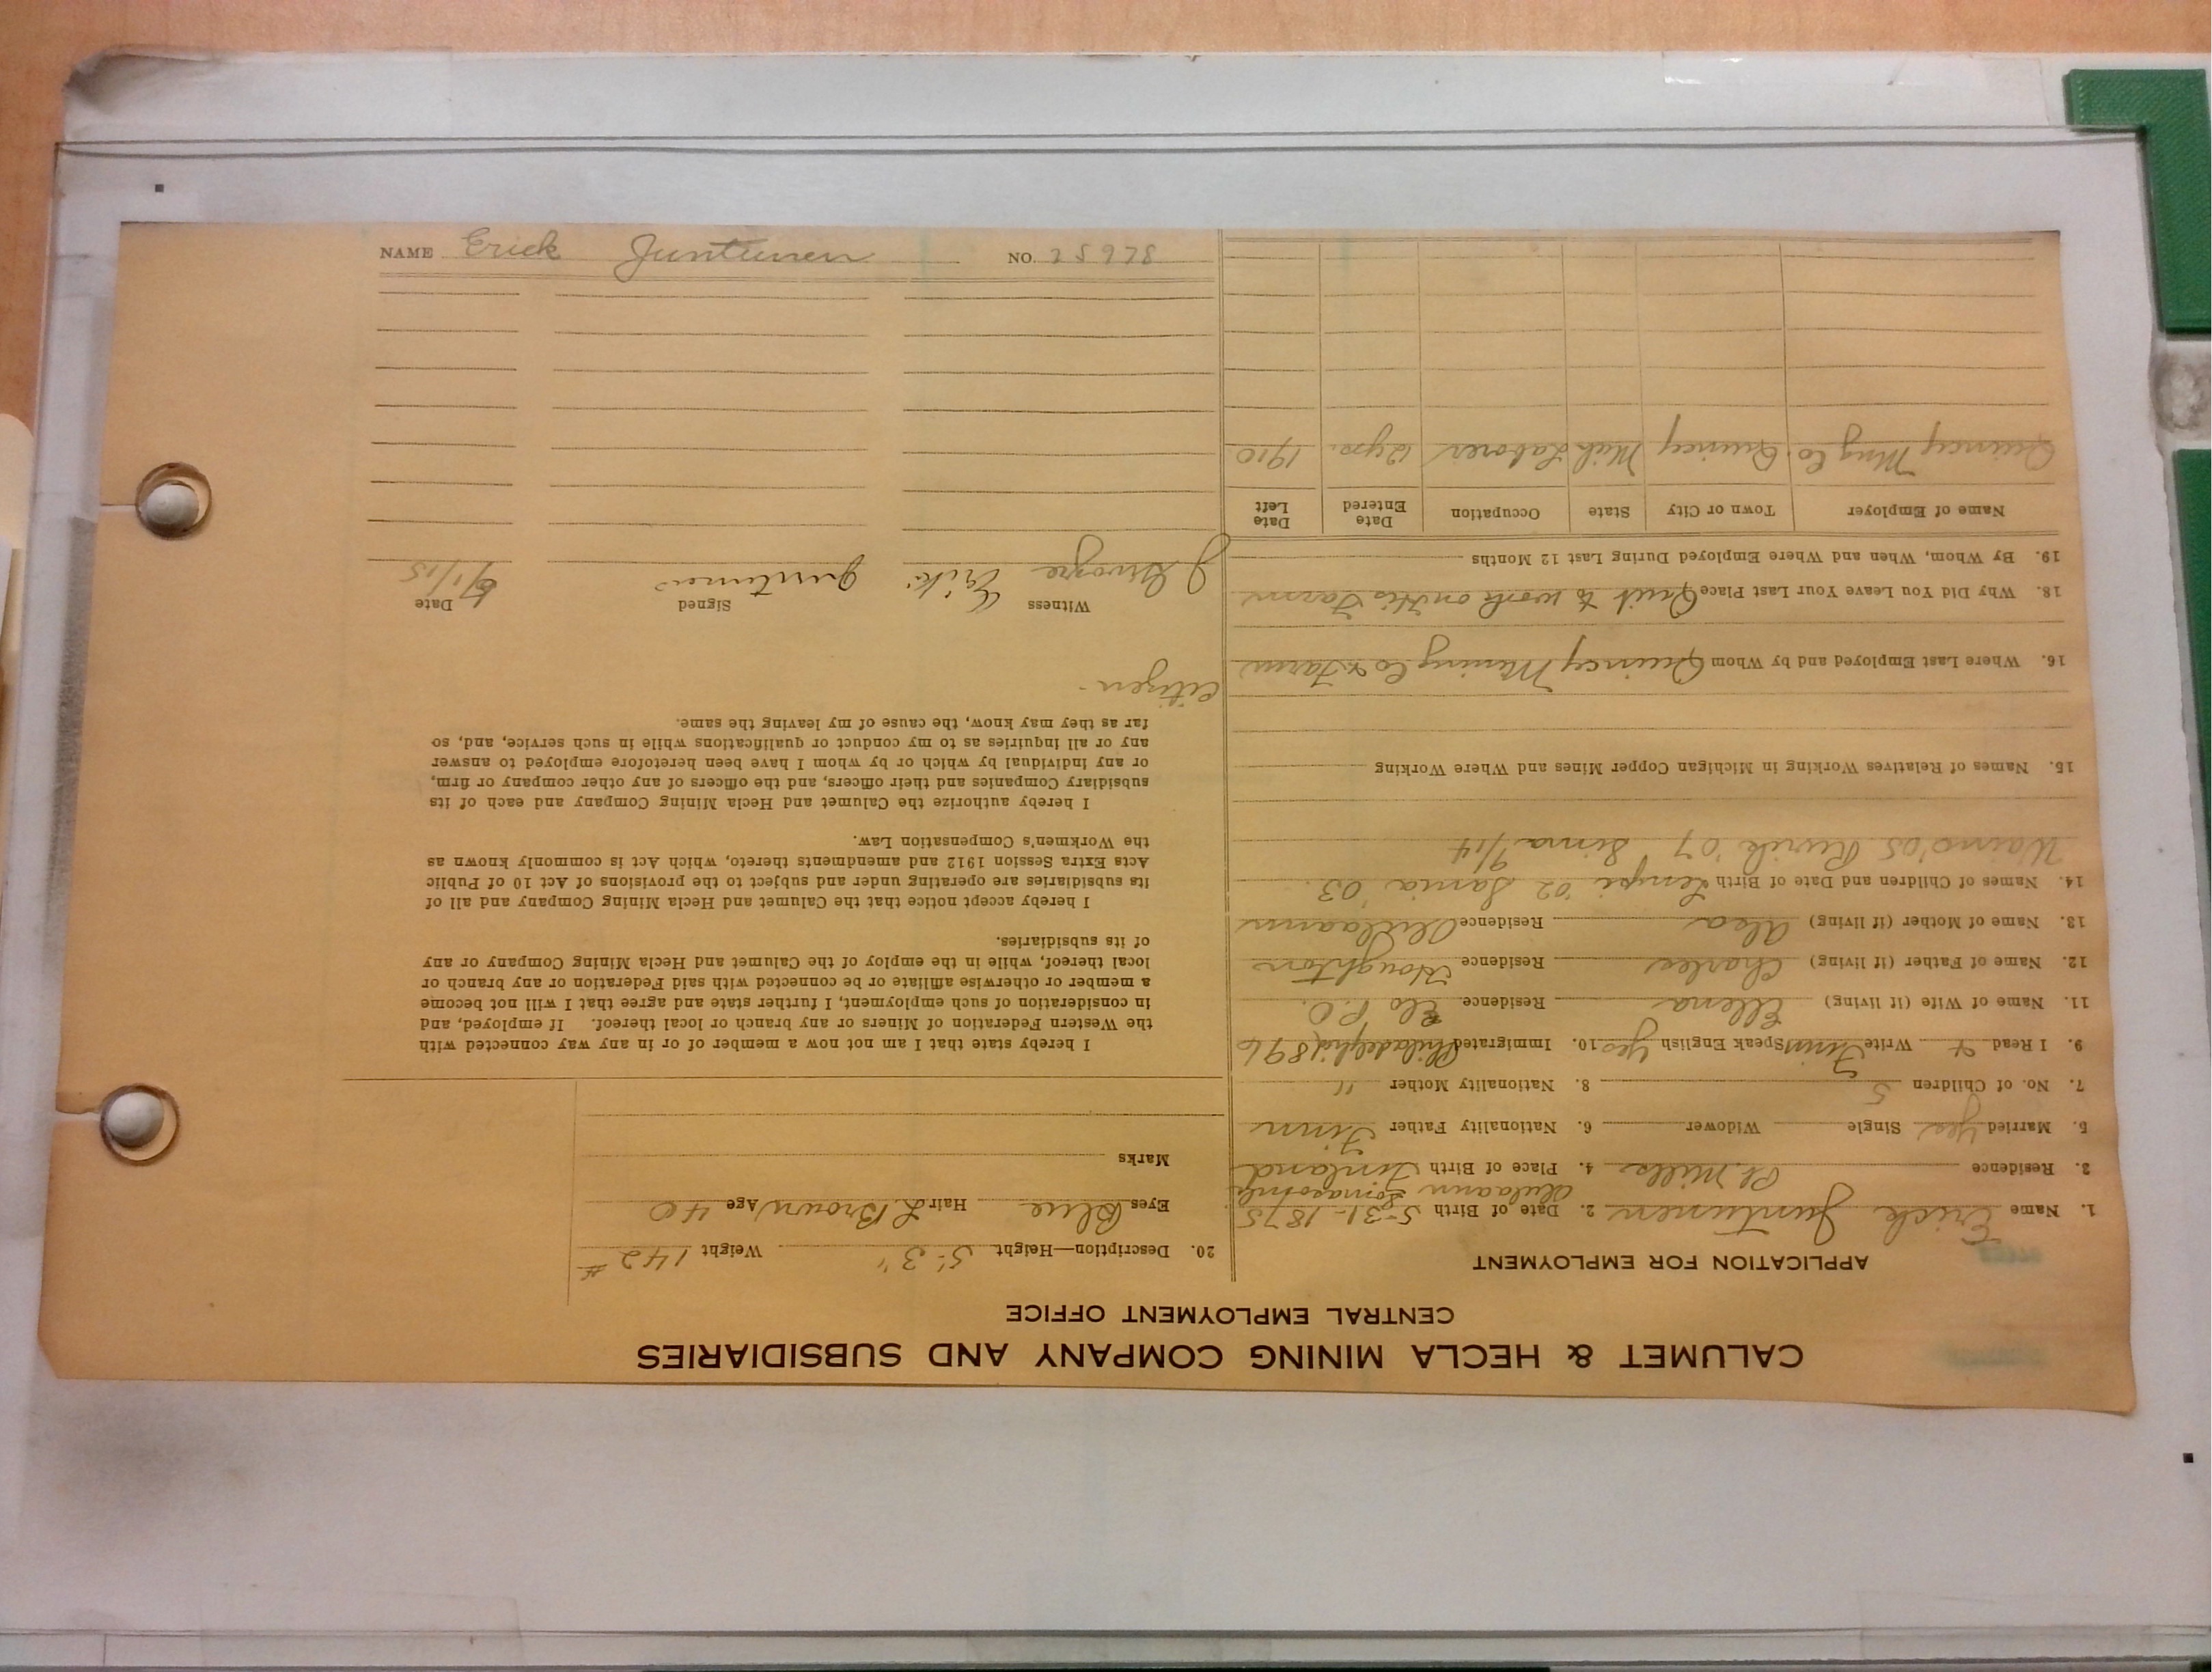 CALUMET & HECLA MINING COMPANY AND SUBSIDIARIES
CENTRAL EMPLOYMENT OFFICE
APPLICATION FOR EMPLOYMENT
1. Name Erick Juntunen 2. Date of Birth 5-31-1875
3. Residence Pt. Mills 4. Place of Birth Finland
5. Married Yes Single Widower 6. Nationality Father Finn
7. No. of Children 5 8. Nationality Mother "
9. I Read & Write Finn Speak English Yes 10. Immigrated 1896
11. Name of Wife (if living) Ellena Residence Elo P.O.
12. Name of Father (if living) Charles Residence Houghton
13. Name of Mother (if living) Residence
14. Names of Children and Date of Birth '02 '03.
Waino '05 '07 9/14
15. Names of Relatives Working in Michigan Copper Mines and Where Working
16. Where Last Employed and by Whom Quincy Mining Co & Farm
18. Why Did You Leave Your Last Place Quit to work on His Farm
19. By Whom, When and Where Employed During Last 12 Months
Name of Employer Town or City State Occupation Date Entered Date Left
Quincy Mng Co. Quincy Mich Laborer 12 yrs. 1910
20. Description—Height 5'-3" Weight 142 #
Eyes Blue Hair L. Brown Age 40
Marks
I hereby state that I am not now a member of or in any way connected with
the Western Federation of Miners or any branch or local thereof. If employed, and
in consideration of such employment, I further state and agree that I will not become
a member or otherwise affiliate or be connected with said Federation or any branch or
local thereof, while in the employ of the Calumet and Hecla Mining Company or any
of its subsidiaries.
I hereby accept notice that the Calumet and Hecla Mining Company and all of
its subsidiaries are operating under and subject to the provisions of Act 10 of Public
Acts Extra Session 1912 and amendments thereto, which Act is commonly known as
the Workmen's Compensation Law.
I hereby authorize the Calumet and Hecla Mining Company and each of its
subsidiary Companies and their officers, and the officers of any other company or firm,
or any individual by which or by whom I have been heretofore employed to answer
any or all inquiries as to my conduct or qualifications while in such service, and, so
far as they may know, the cause of my leaving the same.
Citizen -
Witness Signed Date
Juntunen
NAME Erick Juntunen NO. 25978